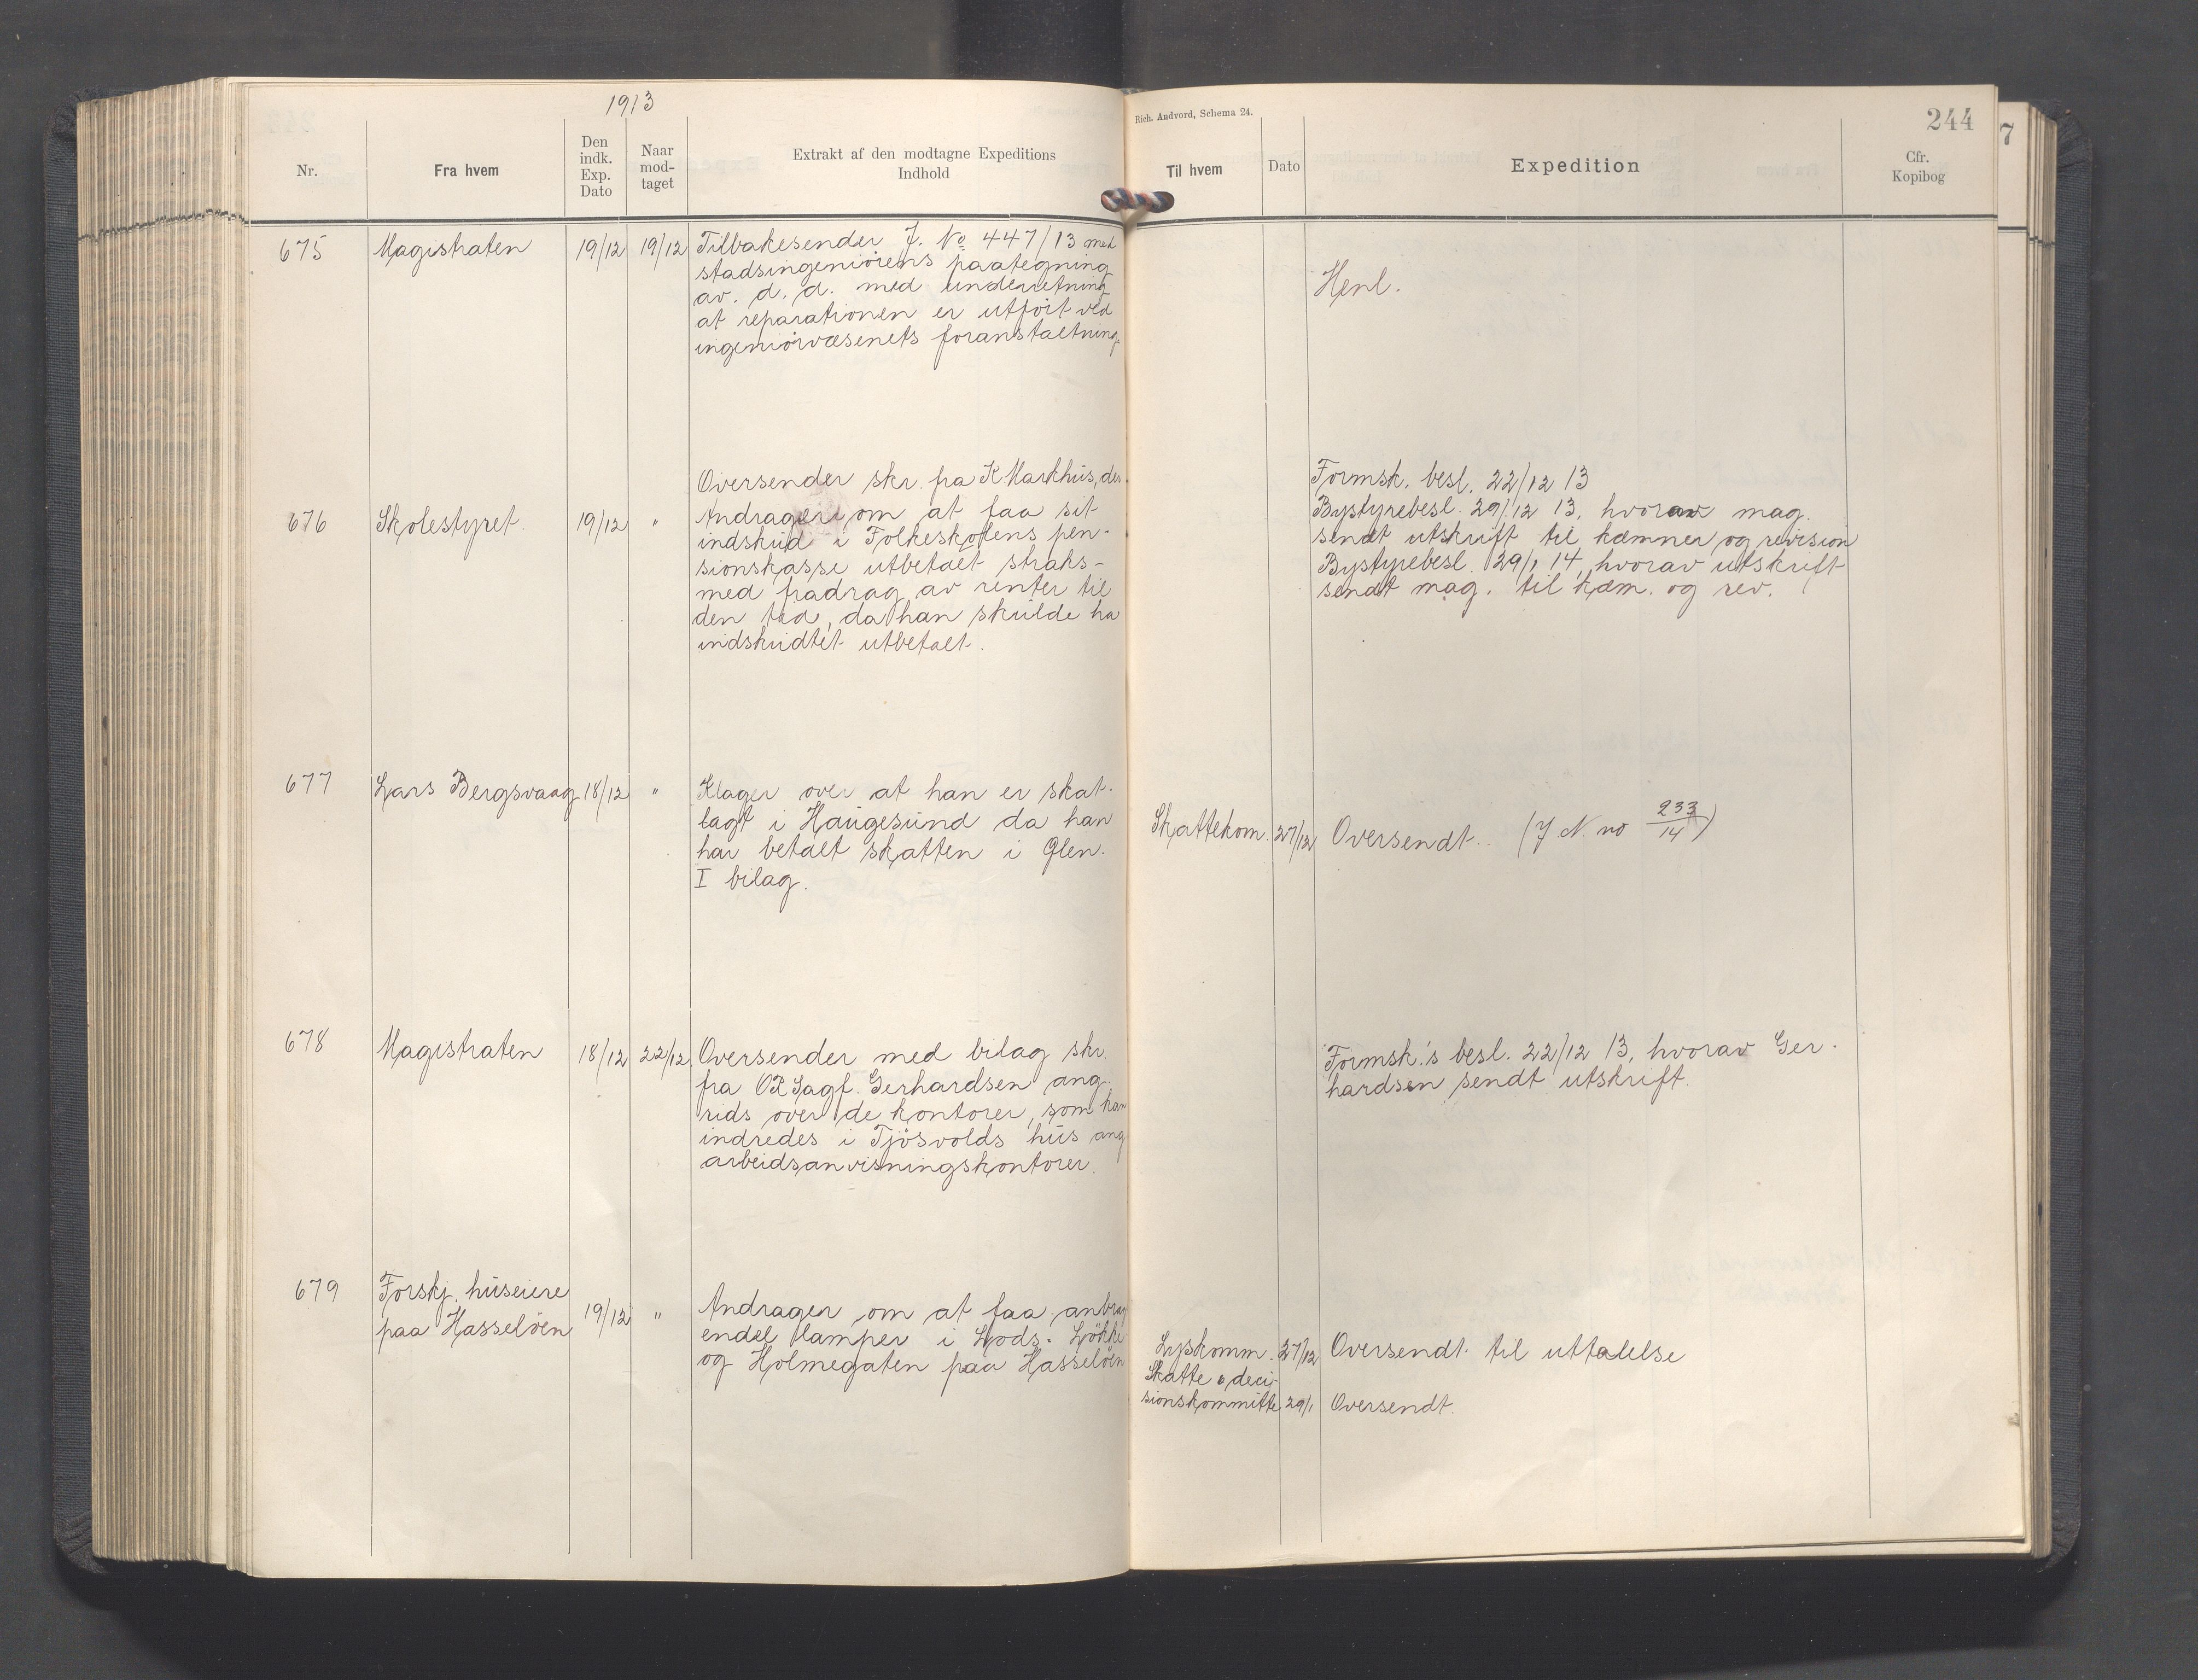 1913
Rich. Andvord, Schema 24.
244
7
Nr.
Fra hvem
Den indk. Exp. Dato
Naar mod- taget
Extrakt af den modtagne Expeditions Indhold
Til hvem
Dato
Expedition
Cfr. Kopibog
675 Magistraten 19/12 19/12 Tilbakesender J. No 447/13 med
stadsingeniörens paategning
av. d. d. med underretning
at reparationen er utfört ved
ingeniörvæsenets foranstaltning.
Henl.
Oversender skr. fra K. Markhus, der
676 Skolestyret. 19/12 " Andrager om at faa sit
indskud i Folkeskolens pen-
sionskasse utbetalt straks -
med fradrag av renter til
den tid, da han skulde ha
indskudtet utbetalt.
Formsk. besl. 22/12 13
Bystyrebesl. 29/12 13, hvorav mag.
sendt utskrift til kæmner og revision
Bystyrebesl. 29/1 14, hvorav utskrift
sendt mag. til kæm. og rev.
677 Lars Bergsvaag 18/12 " Klager over at han er skat-
lagt i Haugesund da han
har betalt skatten i Ølen.
I bilag.
Skattekom. 27/12 Oversendt. (J N. no 233/14)
678 Magistraten 18/12 22/12 Oversender med bilag skr.
fra O K Sagf. Gerhardsen ang.
rids over de kontorer, som kan
indredes i Tjösvolds hus ang
arbeidsanvisningskontorer.
Formsk.'s besl. 22/12 13, hvorav Ger-
hardsen sendt utskrift.
679 Forskj. huseiere
paa Hasselöen 19/12 " Andrager om at faa anbrag
endel lamper i Lods- Lökke
og Holmegaten paa Hasselöen
Lyskomm. 27/12 Oversendt til uttalelse
Skatte & deci-
sionskommitte 29/1 Oversendt.